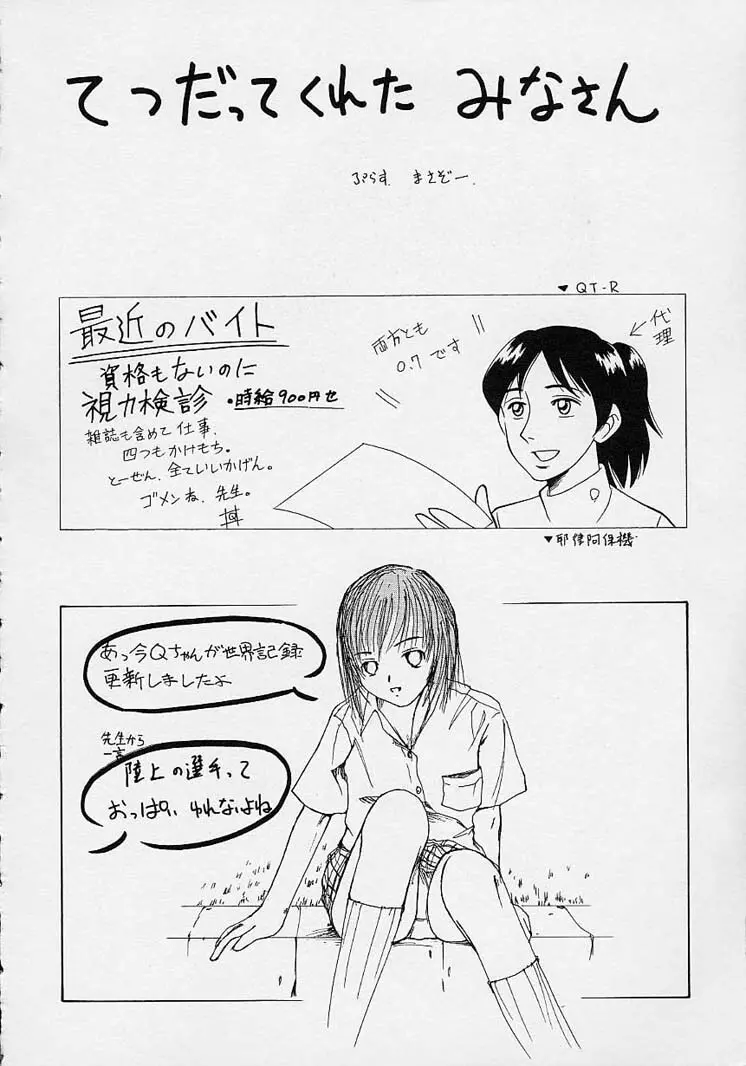 てつだってくれた みなさん
ぷらす まさぞー.
▼ QT-R
最近のバイト
資格もないのに
視力検診 ・時給900円也
雑誌も含めて仕事、
四つもかけもち。
とーぜん、全ていいかげん。
ゴメンね、先生。
両方とも
0.7 です
代理
▼耶律阿保機
あっ今Qちゃんが世界記録
更新しましたよ
先生から
一言
陸上の選手って
おっぱい ゆれないよね